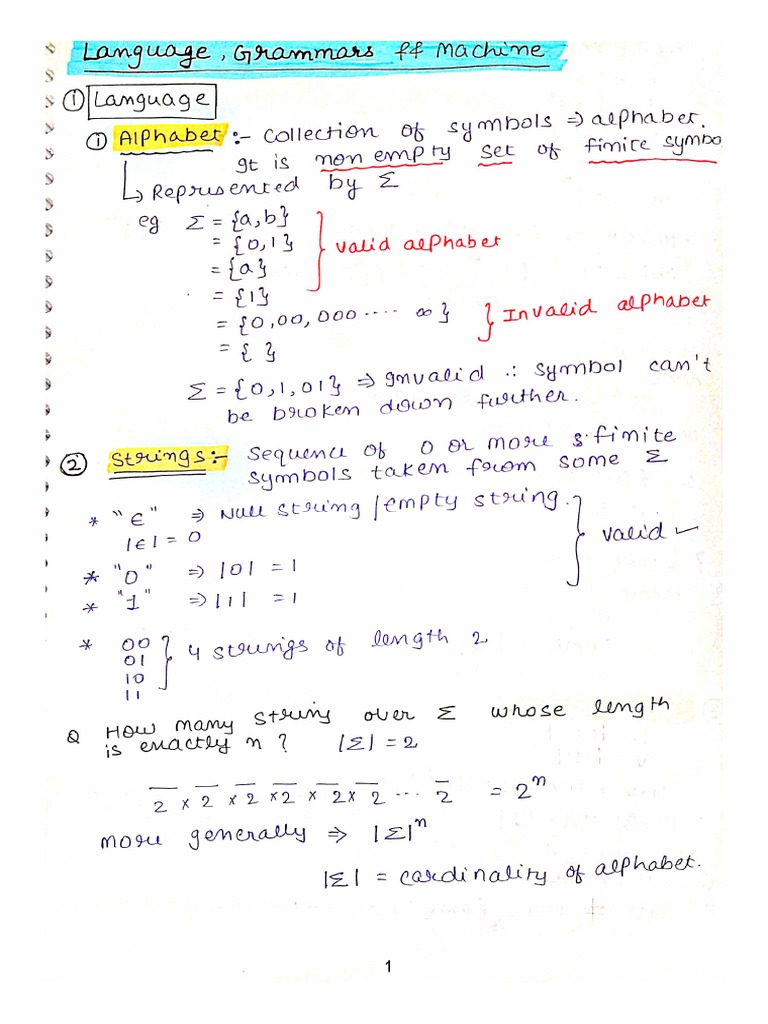 Language, Grammars ff Machine
① Language
① Alphabet :- Collection of symbols ⇒ alphabet.
It is non empty set of finite symbo
↳ Represented by Σ
eg Σ = {a,b}
= {0,1}
= {a}
= {1}
valid alphabet
= {0,00,000 ..... ∞}
= { }
Invalid alphabet
Σ = {0,1,01} ⇒ Invalid ∴ symbol can't
be broken down further.
② Strings :- Sequence of 0 or more finite
symbols taken from some Σ
* "ϵ" ⇒ Null string / empty string.
|ϵ| = 0
* "0" ⇒ |0| = 1
* "1" ⇒ |1| = 1
valid ✓
* 00
01
10
11
4 strings of length 2
Q How many string over Σ whose length
is exactly n ? |Σ| = 2
2 x 2 x 2 x 2 x 2 x 2 ... 2 = 2ⁿ
more generally ⇒ |Σ|ⁿ
|Σ| = cardinality of alphabet.
1